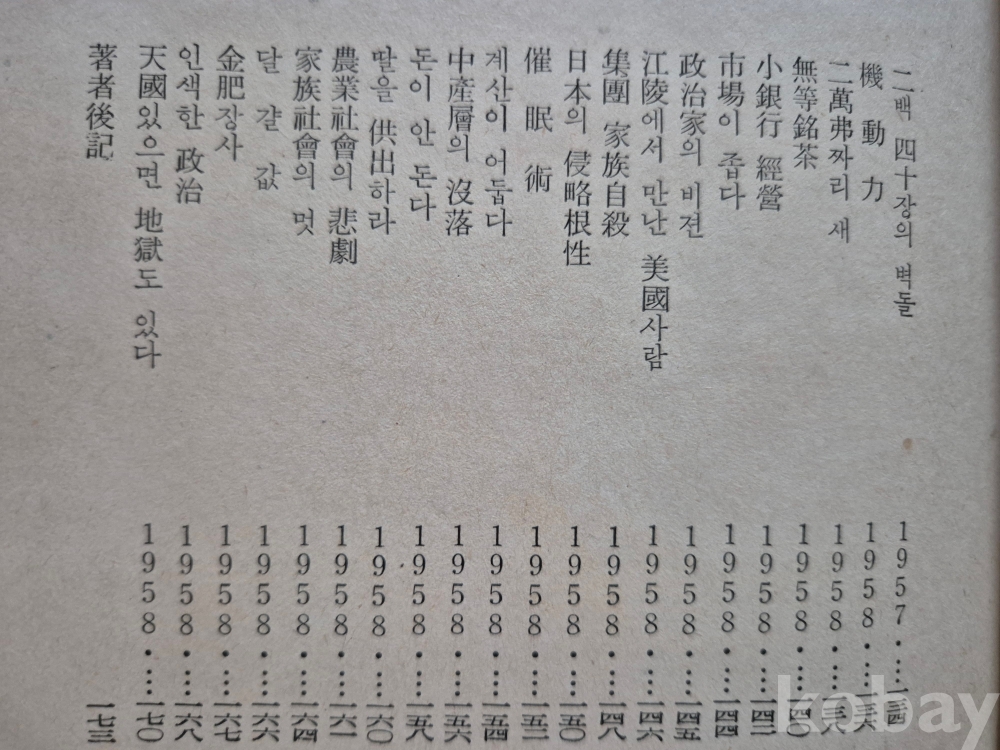 二백 四十장의 벽돌 1957·…一三四
機動力 1958·…一三六
二萬弗짜리 새 1958·…一三八
無等銘茶 1958·…一四〇
小銀行 經營 1958·…一四二
市場이 좁다 1958·…一四四
政治家의 비젼 1958·…一四五
江陵에서 만난 美國사람 1958·…一四六
集團 家族自殺 1958·…一四八
日本의 侵略根性 1958·…一五〇
催眠術 1958·…一五二
계산이 어둡다 1958·…一五四
中產層의 沒落 1958·…一五六
돈이 안 돈다 1958·…一五八
딸을 供出하라 1958·…一六〇
農業社會의 悲劇 1958·…一六一
家族社會의 멋 1958·…一六四
달걀값 1958·…一六六
金肥장사 1958·…一六七
인색한 政治 1958·…一六八
天國있으면 地獄도 있다 1958·…一七〇
著者後記 一七三
kobay